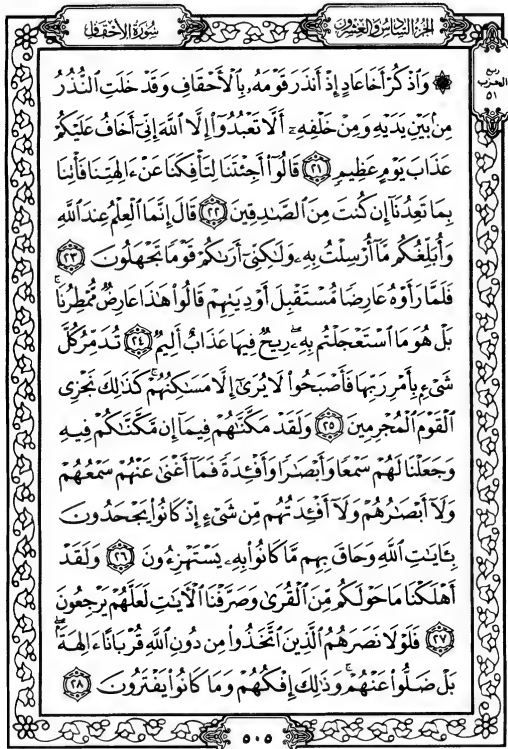 سُورَةُ الأَحْقَافِ
الجُزْءُ السَّادِسُ وَالعِشْرُونَ
رُبع
الحِزب
٥١
۞ وَٱذْكُرْ أَخَا عَادٍ إِذْ أَنذَرَ قَوْمَهُۥ بِٱلْأَحْقَافِ وَقَدْ خَلَتِ ٱلنُّذُرُ
مِنۢ بَيْنِ يَدَيْهِ وَمِنْ خَلْفِهِۦٓ أَلَّا تَعْبُدُوٓا۟ إِلَّا ٱللَّهَ إِنِّىٓ أَخَافُ عَلَيْكُمْ
عَذَابَ يَوْمٍ عَظِيمٍ ٢١ قَالُوٓا۟ أَجِئْتَنَا لِتَأْفِكَنَا عَنْ ءَالِهَتِنَا فَأْتِنَا
بِمَا تَعِدُنَآ إِن كُنتَ مِنَ ٱلصَّٰدِقِينَ ٢٢ قَالَ إِنَّمَا ٱلْعِلْمُ عِندَ ٱللَّهِ
وَأُبَلِّغُكُم مَّآ أُرْسِلْتُ بِهِۦ وَلَٰكِنِّىٓ أَرَىٰكُمْ قَوْمًا تَجْهَلُونَ ٢٣
فَلَمَّا رَأَوْهُ عَارِضًا مُّسْتَقْبِلَ أَوْدِيَتِهِمْ قَالُوا۟ هَٰذَا عَارِضٌ مُّمْطِرُنَا ۚ
بَلْ هُوَ مَا ٱسْتَعْجَلْتُم بِهِۦ ۖ رِيحٌ فِيهَا عَذَابٌ أَلِيمٌ ٢٤ تُدَمِّرُ كُلَّ
شَىْءٍۭ بِأَمْرِ رَبِّهَا فَأَصْبَحُوا۟ لَا يُرَىٰٓ إِلَّا مَسَٰكِنُهُمْ ۚ كَذَٰلِكَ نَجْزِى
ٱلْقَوْمَ ٱلْمُجْرِمِينَ ٢٥ وَلَقَدْ مَكَّنَّٰهُمْ فِيمَآ إِن مَّكَّنَّٰكُمْ فِيهِ
وَجَعَلْنَا لَهُمْ سَمْعًا وَأَبْصَٰرًا وَأَفْـِٔدَةً فَمَآ أَغْنَىٰ عَنْهُمْ سَمْعُهُمْ
وَلَآ أَبْصَٰرُهُمْ وَلَآ أَفْـِٔدَتُهُم مِّن شَىْءٍ إِذْ كَانُوا۟ يَجْحَدُونَ
بِـَٔايَٰتِ ٱللَّهِ وَحَاقَ بِهِم مَّا كَانُوا۟ بِهِۦ يَسْتَهْزِءُونَ ٢٦ وَلَقَدْ
أَهْلَكْنَا مَا حَوْلَكُم مِّنَ ٱلْقُرَىٰ وَصَرَّفْنَا ٱلْـَٔايَٰتِ لَعَلَّهُمْ يَرْجِعُونَ
٢٧ فَلَوْلَا نَصَرَهُمُ ٱلَّذِينَ ٱتَّخَذُوا۟ مِن دُونِ ٱللَّهِ قُرْبَانًا ءَالِهَةًۢ ۖ
بَلْ ضَلُّوا۟ عَنْهُمْ ۚ وَذَٰلِكَ إِفْكُهُمْ وَمَا كَانُوا۟ يَفْتَرُونَ ٢٨
٥٠٥